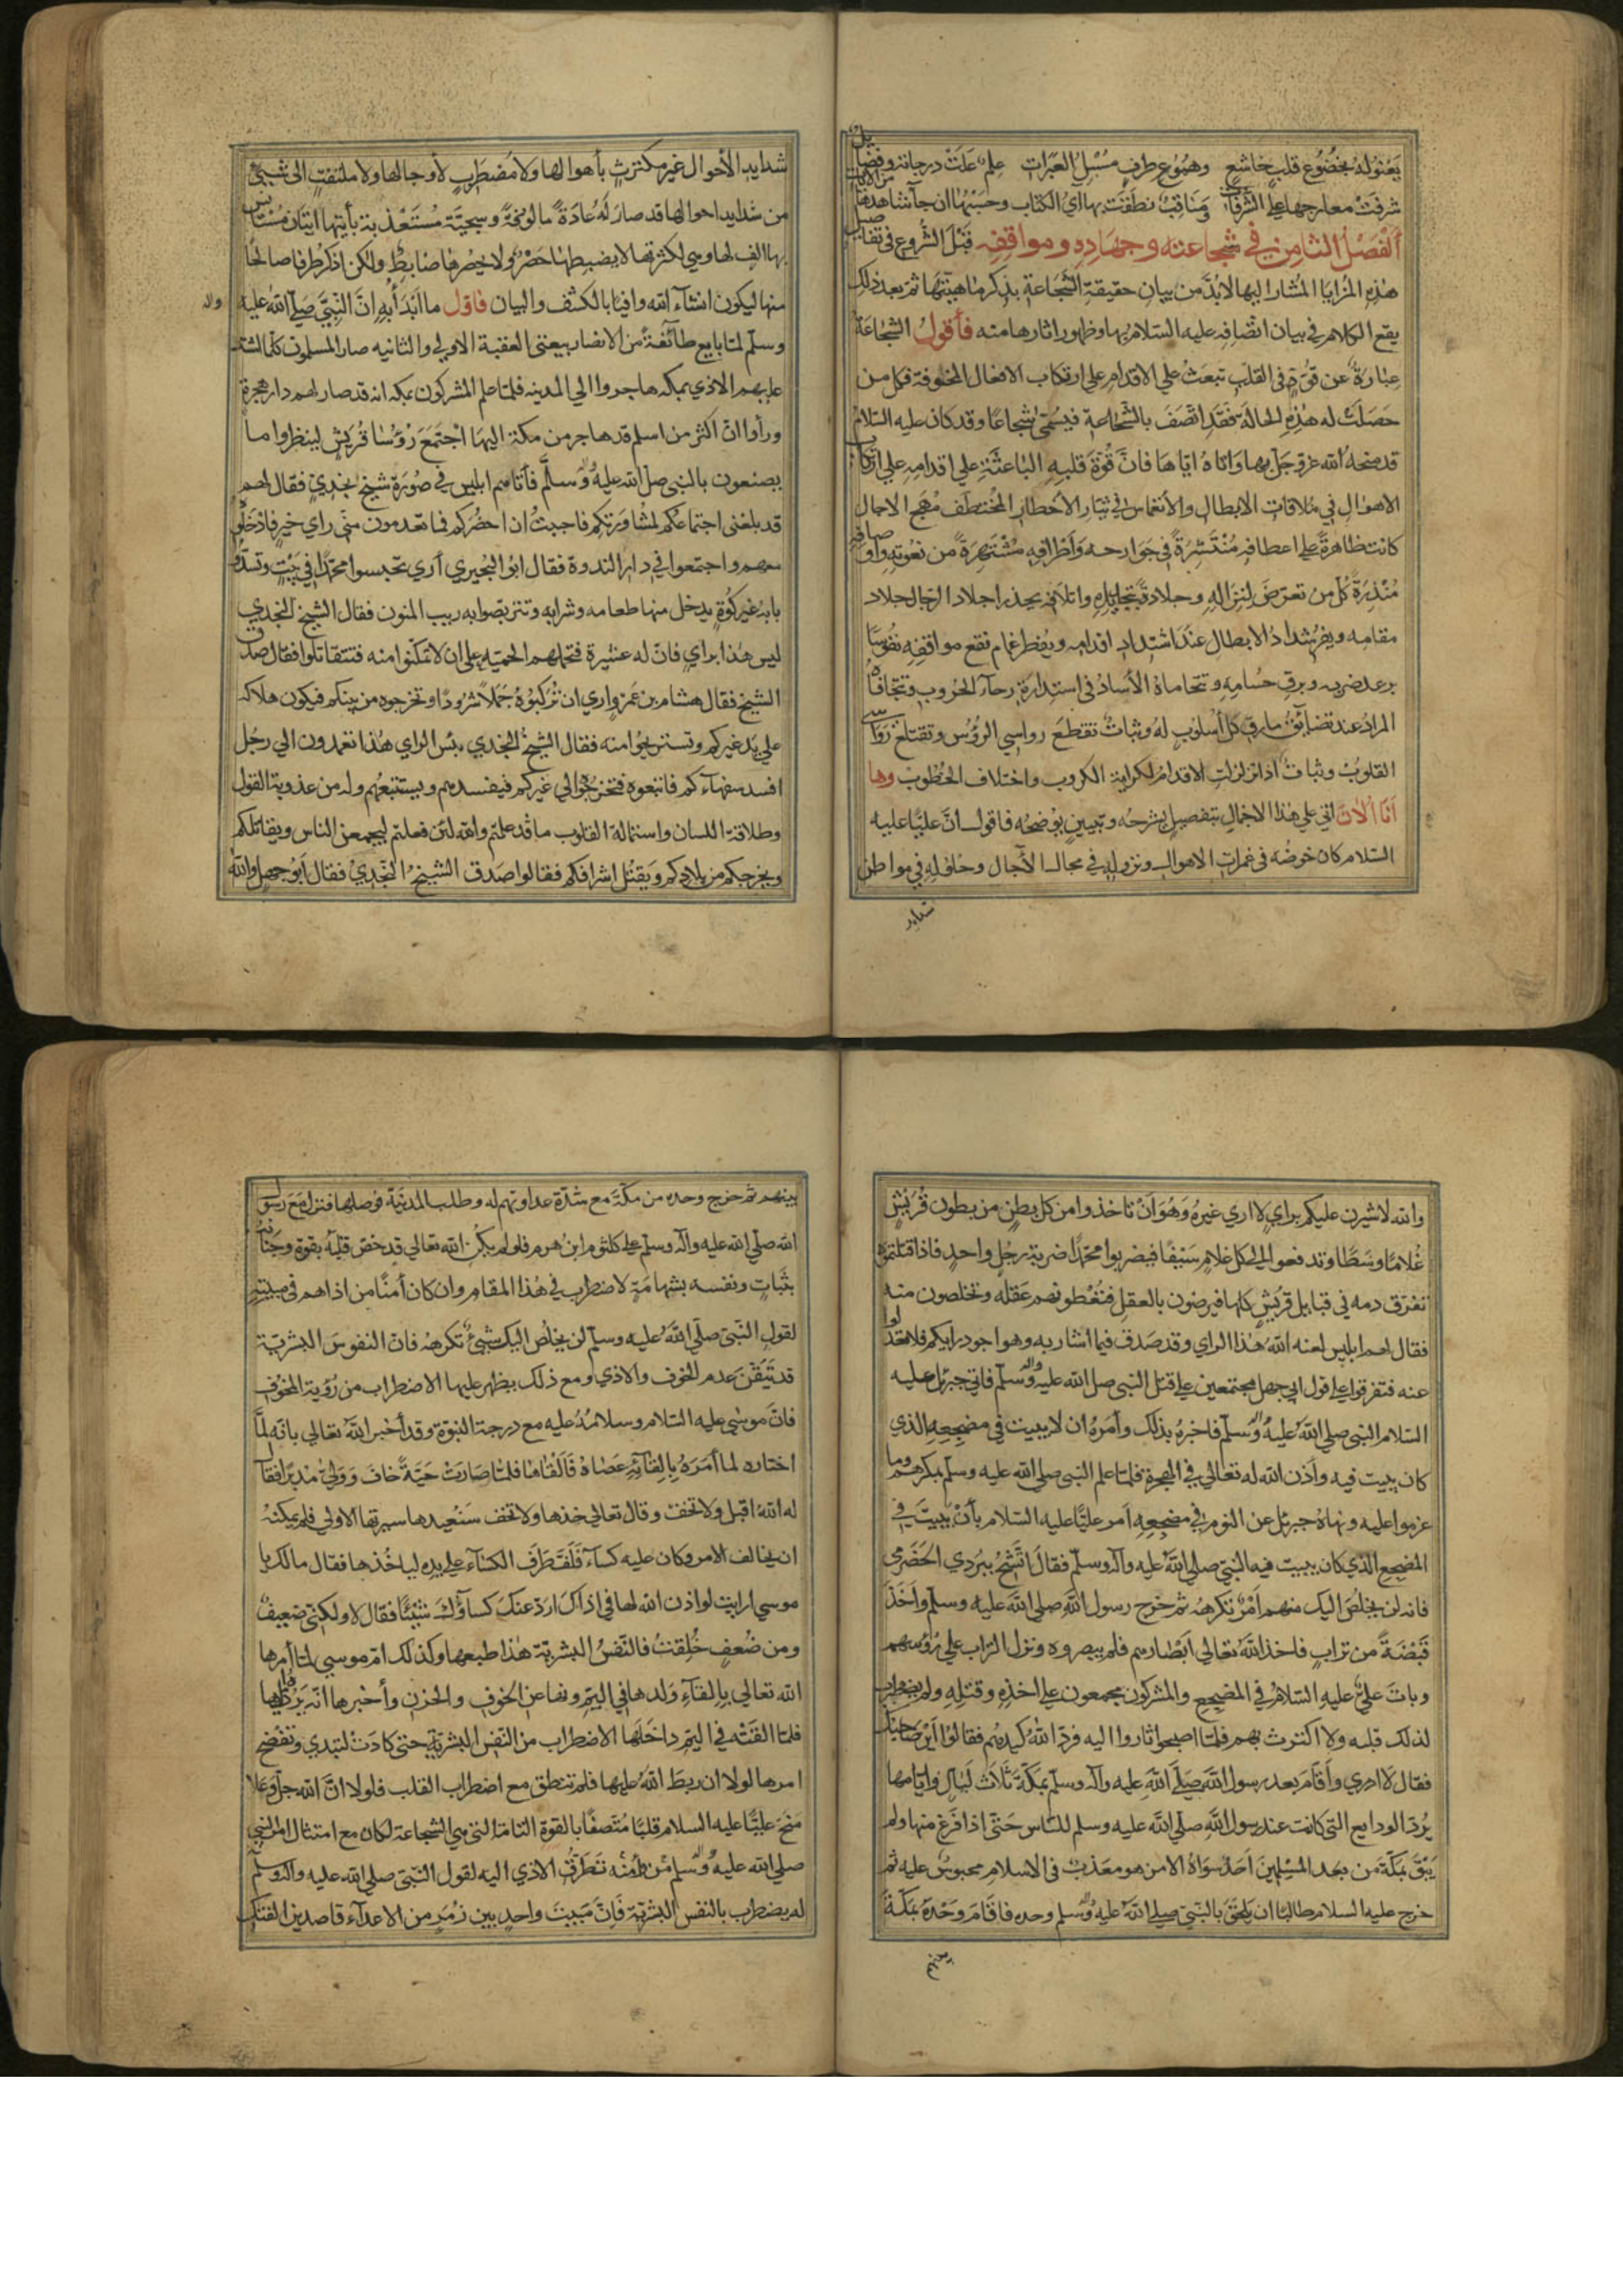 يَعْنُو لَهُ بخُضُوع قلبٍ خاشعٍ وهُمُوع طرفٍ مُسْبِلُ العَبَراتِ علمٌ عَلَتْ درجاته وفضايل
شرفَتْ معارجها على الشرفات ومَنَاقبٌ نطَقَتْ بها آيُ الكتاب وحَسْبُهَا ان جآ شاهدها من الايات
اَلْفَصْلُ الثامن في شجاعته وجهاده ومواقفه قبْلَ الشُّروع في تفاصيل
هذه المزايا المُشار اليها لابُدّ من بيان حقيقة الشَّجاعة بذكر ماهيتها ثم بعد ذلك
يقع الكلام في بيان اتّصافه عليه السّلام بها وظهور اثارها منه فأقولُ الشجاعَةُ
عِبارةٌ عن قُوّةٍ في القلب تبعثُ على الاقدام على ارتكاب الافعال المخوفة فكل من
حَصَلَتْ له هٰذه الحالة فقَدِ اتّصَفَ بالشّجاعة فيُسَمّى شجاعًا وقد كان عليه السّلامُ
قد منحه الله عزوجلّ بها واتاهُ ايّاها فانّ قُوّةَ قلبه الباعثَةَ على اقدامه على ارتكاب
الاهوال في ملاقات الابطال والانغماس في تيّار الأخطار المُختطف مُهَج الاجال
كانت ظاهرةً على اعطافه مُنْتَشِرَةً في جوارحه وَاطرافه مُشْتَهِرَةً من نعُوته واوصافه
مُنْذِرَةً كلَّ من تعرّض لِنِزاله وجلاده بتجليله واتلافه يحذر اجلاد الرجال جلاد
مقامه ويفرّ شدادُ الابطال عندَ اشتداد اقدامه ويُفطر غمام نقع مواقفه نفُوسًا
برعد ضربه وبرق حُسامه وتتحاماهُ الأسادُ في استدارة رحآء الحُروب وتتجافاهُ
المرادُ عند تضائق مارق كل أسلوب له وثباتٌ تقطع رواسي الرؤُس وتقتلع رَوَاسي
القلوب وثباتٌ اذا تزلزلت الاقدام لكراية الكروب واختلاف الخُطُوب وها
اَنَا اَلآنَ اتي على هذا الاجمال بتفصيلٍ يشرحُه وتبيينٍ يُوضحُه فاقول انَّ عليًّا عليه
السّلام كان خوضه في غمرات الاهوال ونزوله في مجال الآجال وحلوله في مواطن
شدايد
شدايد الأحوال غير مكترثٍ بأهوالها ولا مُضطرِبٍ لأوجالها ولا ملتفتٍ الى شيئ
من شدايد احوالها قد صار لهُ عادةً مالوفةً وسجيّة مُستعذبة يأتيها اتيان مُستأنسٍ
بها الِف لها وهي لكثرتها لا يضبطها حَصْرٌ ولا يحصرها ضابطٌ ولكن اذكر طرفا صالحًا
منها ليكون انشآء الله وافيًا بالكشف والبيان فاقول ما ابدأُ به انّ النّبيّ صلّى الله عليه
واله
وسلّم لمّا بايع طائفةٌ من الانصار بيعتي العقبة الاولى والثانيه صار المسلمون كلما اشتد
عليهم الاذى بمكه هاجروا الى المدينه فلمّا علم المشركون بمكه انه قد صار لهم دار هجرة
ورأوا انّ اكثر من اسلم قد هاجر من مكة اليها اجْتَمَعَ رُؤسا قُريش لينظروا ما
يصنعون بالنبى صلى الله عليه وسلَّم فأتاهم ابليس في صُورة شيخٍ نجديٍ فقال لهم
قد بلغني اجتماعُكم لمُشاورتكم فاجبتُ ان احضُركم فما تعدمون منّي راي خيرٍ فادخلوه
معهم واجتمعوا في دار الندوة فقال ابُو البُحيري أري تحبسوا محمّدًا في بيتٍ وتسدّوا
بابهُ غير كُوّةٍ يدخل منها طعامه وشرابه وتتربّصوا به ريب المنون فقال الشيخ النجدي
ليس هٰذا براي فانّ له عشيرة فتحملهم الحميّه على ان لا تمكنوا منه فتتقاتلوا فقال صدق
الشيخ فقال هشام بن عَمرو اري ان تُركبوُهُ جَمَلاً شرُودًا وتخرجوه من بينكم فيكون هلاكه
علي يد غيركم وتستريحوا منه فقال الشيخُ النجدي بئس الراي هٰذا تعمدون الي رجُل
افسد سفهآءكم فاتبعوه فتخرجُوه الي غيركم فيفسدهم ويستتبعُهم وله من عذوبة القول
وطلاقة اللسان واستمالة القلوب ما قد علمتم والله لئن فعلتم ليجمعن الناس ويقاتلكم
ويخرجكم من بلادكم ويَقتُلُ اشرافكم فقالوا صدق الشيخُ النجديُ فقال ابُو جهل والله
والله لاشيرن عليكم براي لا اري غيرهُ وَهُوَ اَنْ تاخذوا من كل بطنٍ من بطون قُريْشٍ
غُلامًا وَسَطًا وتدفعوا الى كل غلامٍ سَيْفًا فيضربوا محمّدًا ضربة رجُلٍ واحدٍ فاذا قتلتموهُ
تفرّق دمه في قبايل قُريشٍ كلها فيرضون بالعقل فتُعْطونهم عقله وتخلصون منه
فقال لهم ابليس لعنه اللهُ هٰذا الراي وقد صدق فيما اشار به وهو اجود رايكم فلا تعدلوا
عنه فتفرقوا على قول ابي جهل مجتمعين على قتل النبى صلى الله عليه واله وسلّم فاتي جبرئل عليه
السّلام النبى صلى اللهُ عليه واله وسلّم فاخبرهُ بذلك وأمرهُ ان لا يبيت في مضجعه الذي
كان يبيت فيه وأذن الله له تعالى في الهجرة فلمّا علم النبى صلى الله عليه وسلّم بمكرهم وما
عزموا عليه ونهاهُ جبرئل عن النوم في مضجعه اَمر عليًّا عليه السّلام بأنْ يَبيتَ في
المضجع الذي كان يبيت فيه النبيّ صلى اللهُ عليه وآله وسلّم فقال اتّشحْ ببُردي الحَضرمي
فانه لن يخلصَ اليك منهم اَمْرٌ تكرههُ ثم خرج رسول الله صلى الله عليه وسلّم وأخذ
قبْضةً من تراب فاخذ اللهُ تعالى اَبْصارهم فلم يبصروه ونزل التراب على رُؤسهم
وباتَ عليٌّ عليه السّلامُ في المضجع والمشركون مجمعون على اخذه وقتله ولم يضطرب
لذلك قلبه ولا اكترث بهم فلمّا اصبحوا ثاروا اليه فردّ اللهُ كيدهُم فقالوا اَيْن صاحبك
فقال لا ادري وأقامَ بعد رسول الله صلّى الله عليه وآله وسلّم بمكّة ثلاثَ ليالٍ وايامها
يُردّ الودايع التي كانت عند رسول الله صلى الله عليه وسلم للناس حتى اذا فرَغ منها ولم
يَبْقَ بمكّة من بعد المسلمين اَحدٌ سواهُ الا من هو معذب في الاسلام محبوسٌ عليه ثم
خرج عليه السلام طالبًا ان يلحَقَ بالنبّى صلى اللهُ عليه واله وسلم وحده فاقامَ وَحْدهُ بمكّةَ
بينهم
بينهم ثم خرج وحده من مكّة مع شدّة عداوتهم له وطلب المدينة فوصلها فنزل مع رسول
الله صلى الله عليه وآله وسلّم علي كلثوم ابن هرم فلو لم يكن الله تعالى قد خصّ قلبهُ بقوة وجَنانه
بثباتٍ ونفسه بشهامةٍ لاضطرب في هٰذا المقام وان كان اَمنًا من اذاهم في مبيته
لقول النّبى صلّى اللهُ عليه وسلم لن يخلُص اليك شيئٌ تكرههُ فانّ النفوسَ البشريّة
قد تَيَقّنَ عدم الخوف والاذي ومع ذلك يظهر عليها الاضطراب من رُؤية المخوف
فانّ موسٰي عليه السّلام وسلامُهُ عليه مع درجة النبوّة وقد أخبر اللهُ تعالى بانّه لمّا
اختاره لما أَمرَهُ بالقآئه عصاهُ فألقاها فلمّا صارَتْ حيّةً خافَ وَوَلّى مُدبرًا فقال
له اللهُ اقبل ولا تخفْ وقال تعالى خذها ولا تخف سَنُعيدها سيرتها الاولى فلم يمكنهُ
ان يخالف الامر وكان عليه كسآءٌ فَلَفَّ طَرَفَ الكسآء على يده ليأخُذها فقال مالك يا
موسي ارايت لو اذن الله لها في اذاك اردّ عنكَ كساؤُك شيئًا فقال لا ولكني ضعيفٌ
ومن ضُعفٍ خُلِقتُ فالنّفسُ البشريّة هٰذا طبعها وكذلك امّ موسي لمّا أمرها
الله تعالى بالقآء ولدها في اليمّ ونهاها عن الخوف والحزن وأخبرها انّه يردّهُ اليها
فلمّا القَتْه في اليمّ داخَلَها الاضطراب من النّفس البشريّة حتى كادَت لتبدي وتفضح
امرها لولا ان ربطَ اللهُ عليها فلم تنطق مع اضطراب القلب فلولا انّ الله جلّ وعلا
منحَ عليًّا عليه السلام قلبًا مُتّصفًا بالقوة التامّة التي هي الشجاعة لكان مع امتثال امر النبى
صلى الله عليه واله وسلم مَن وأمنه تَطَرُّق الاذي اليه لقول النّبى صلى الله عليه وآله وسلّم
له يضطرب بالنفس البشريّة فانّ مَبيتَ واحدٍ بين زُمَرٍ من الاعدآء قاصدين الفتك